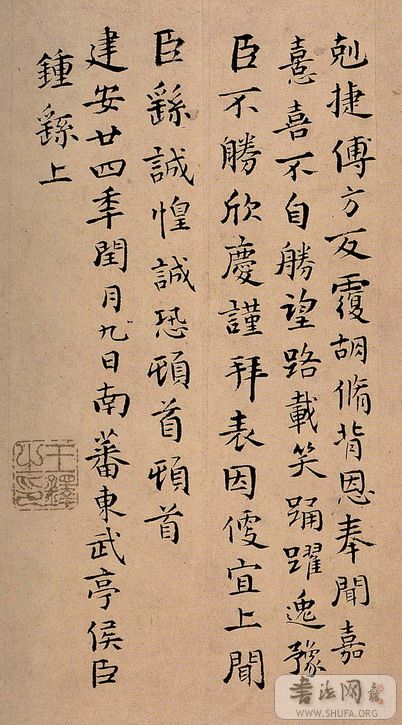 剋捷傅方反覆胡脩背恩奉聞嘉
憙喜不自勝望路載笑踊躍逸豫
臣不勝欣慶謹拜表因便宜上聞
臣繇誠惶誠恐頓首頓首
建安廿四秊閏月九日南蕃東武亭侯臣
鍾繇上
王鐸之印
書法网
WWW.SHUFA.ORG